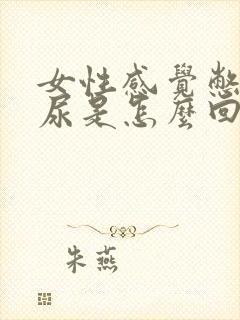 女性感覺憋
尿是怎麼回
朱燕